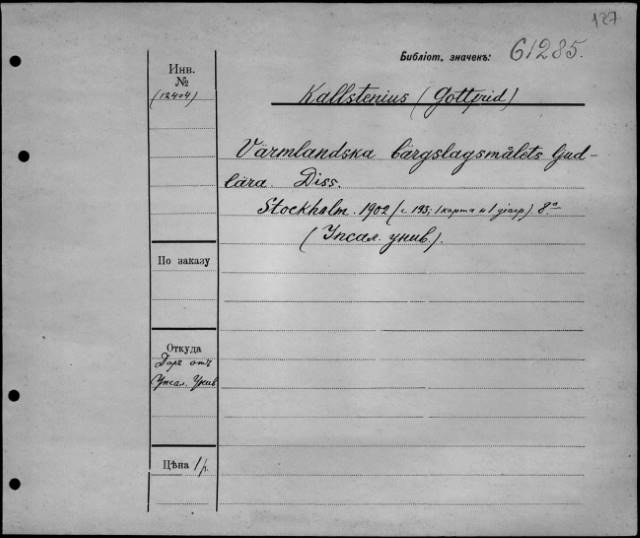 127
Библіот. значекъ: 61285.
Инв.
№
(12404)
Kallstenius (Gottfrid)
Värmlandska bärgslagsmålets ljud-
lära. Diss.
Stockholm. 1902 (с. 195; 1 карта и 1 діагр) 8°
(Упсал. унив.).
По заказу
Откуда
Даръ отъ
Упсал. Унив
Цѣна 1 р.